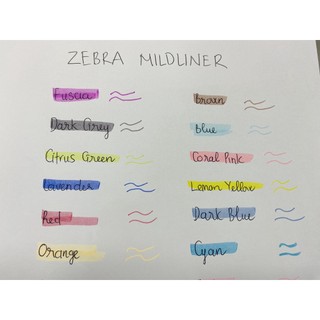 ZEBRA MILDLINER
Fuscia
Dark Grey
Citrus Green
Lavender
Red
Orange
Brown
Blue
Coral Pink
Lemon Yellow
Dark Blue
Cyan